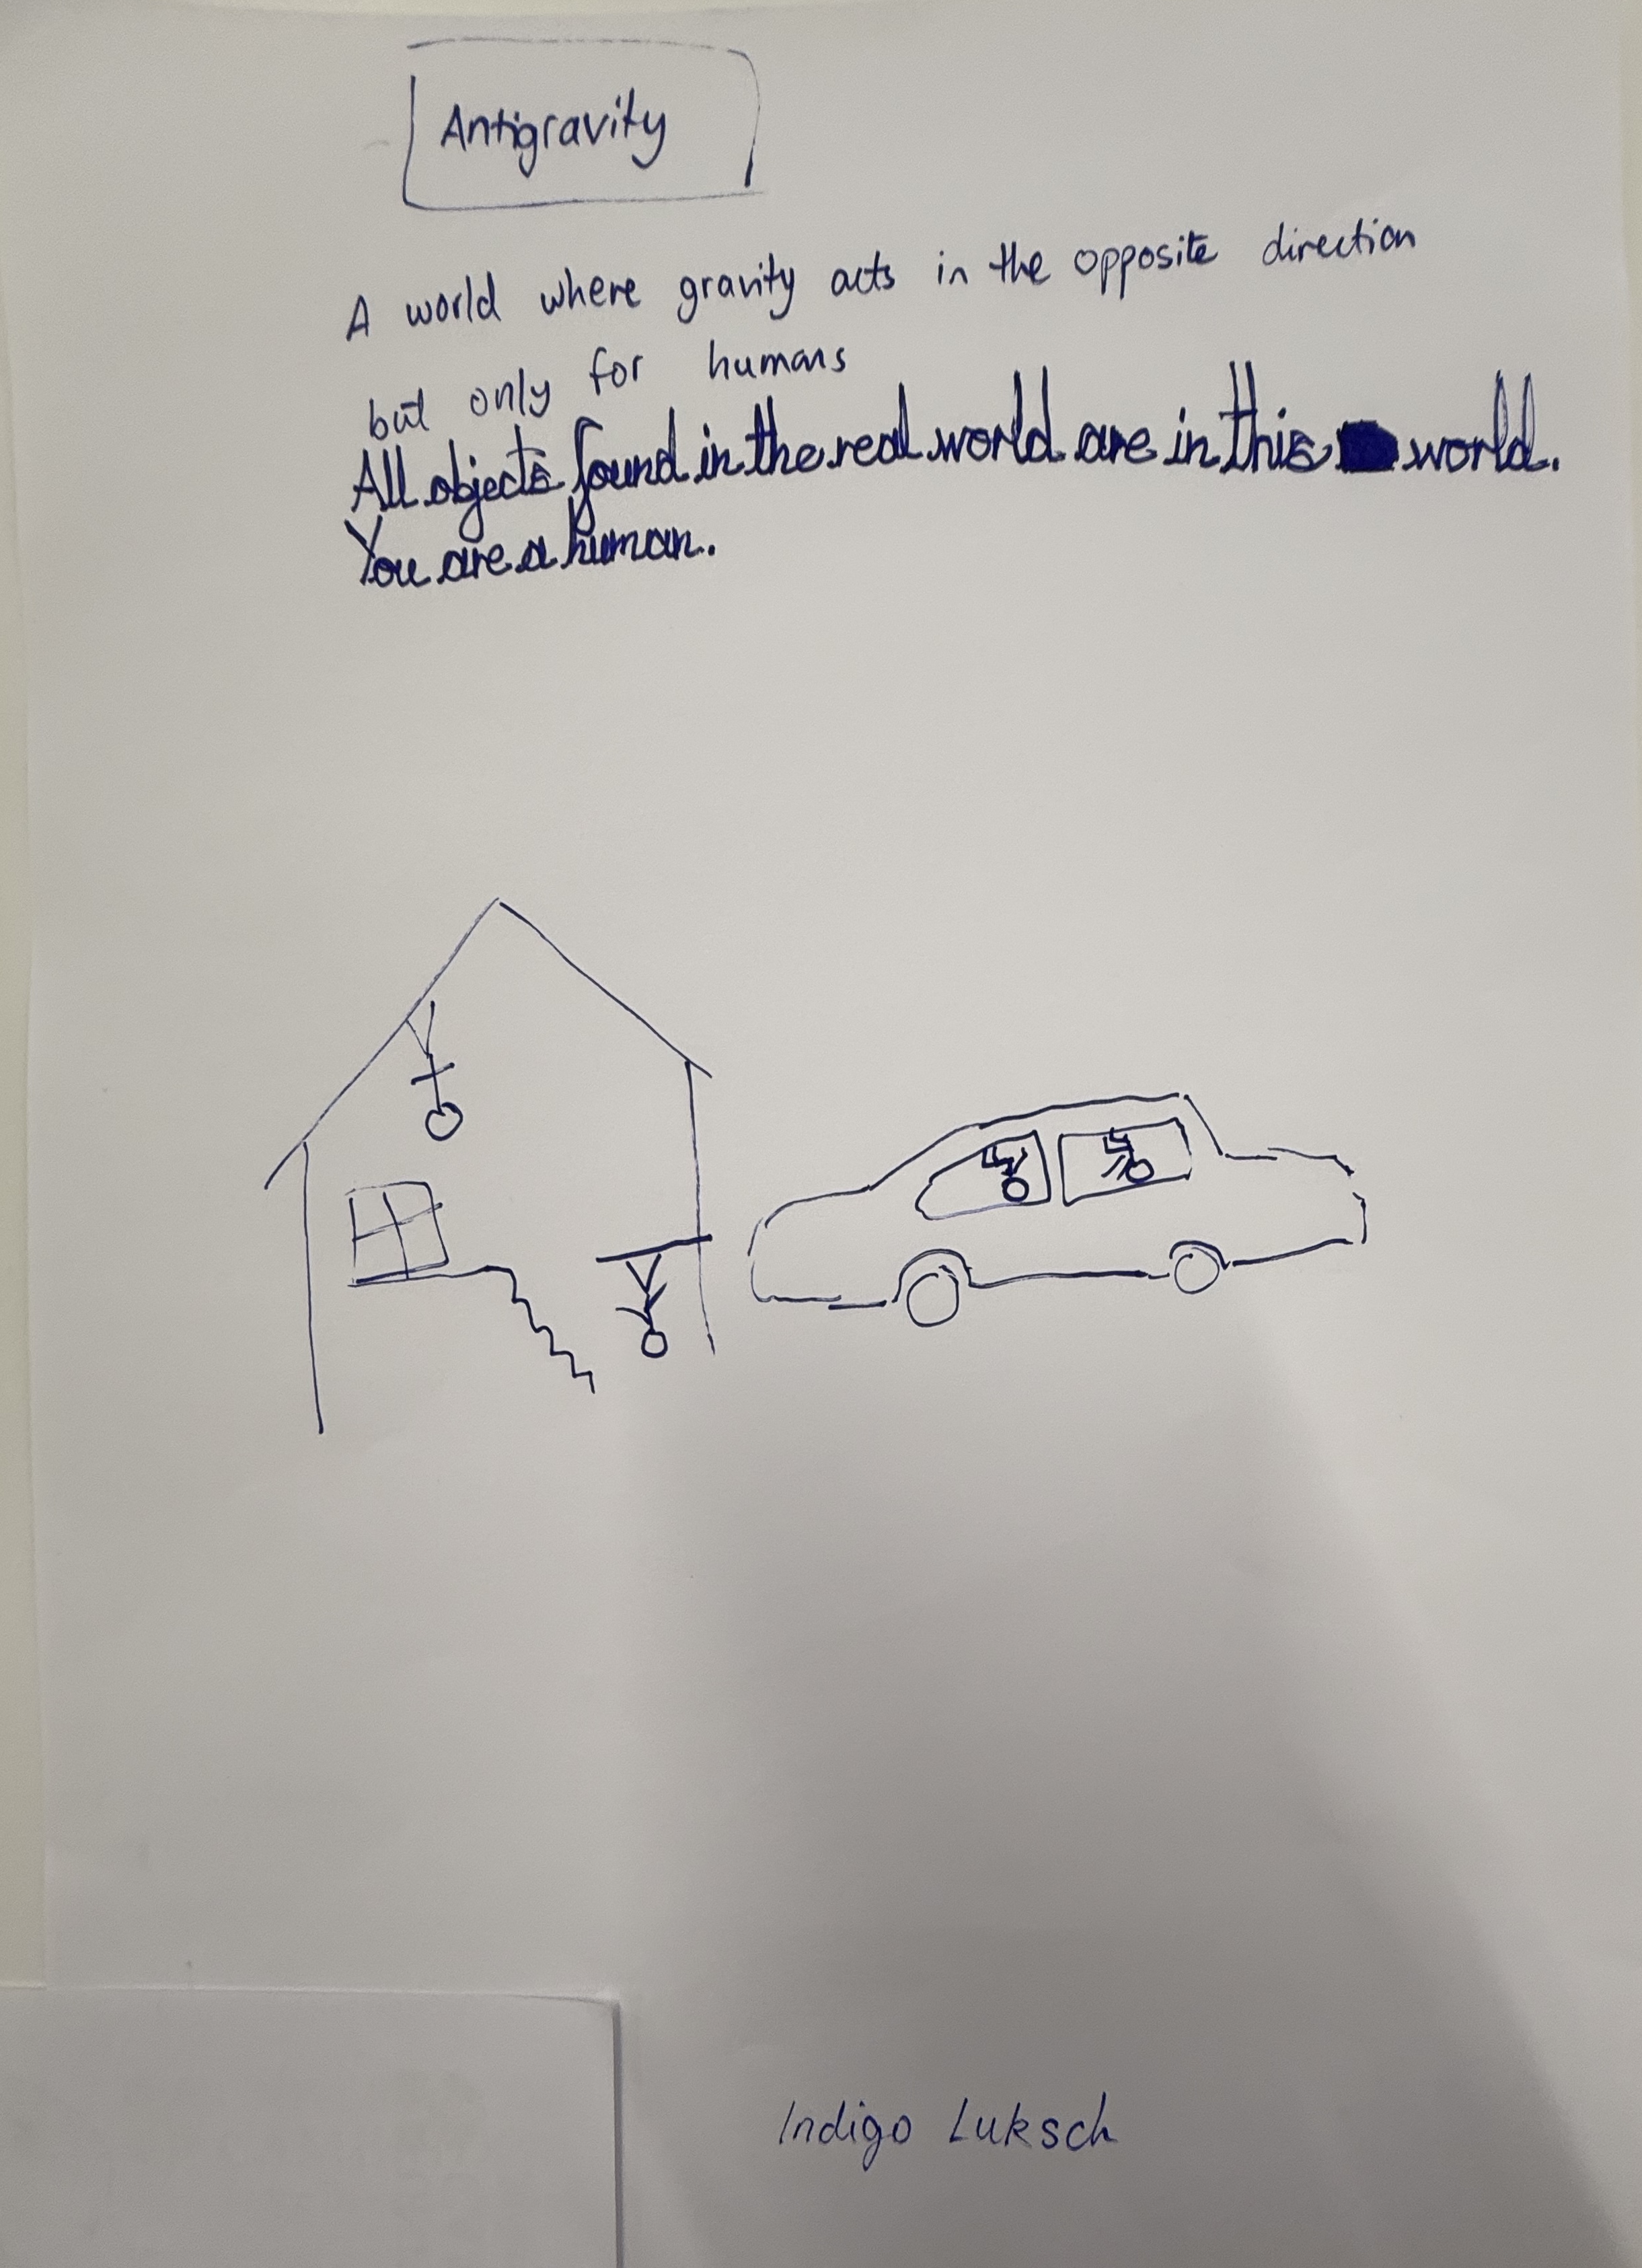 Antigravity
A world where gravity acts in the opposite direction
but only for humans
All objects found in the real world are in this world.
You are a human.
Indigo Luksch